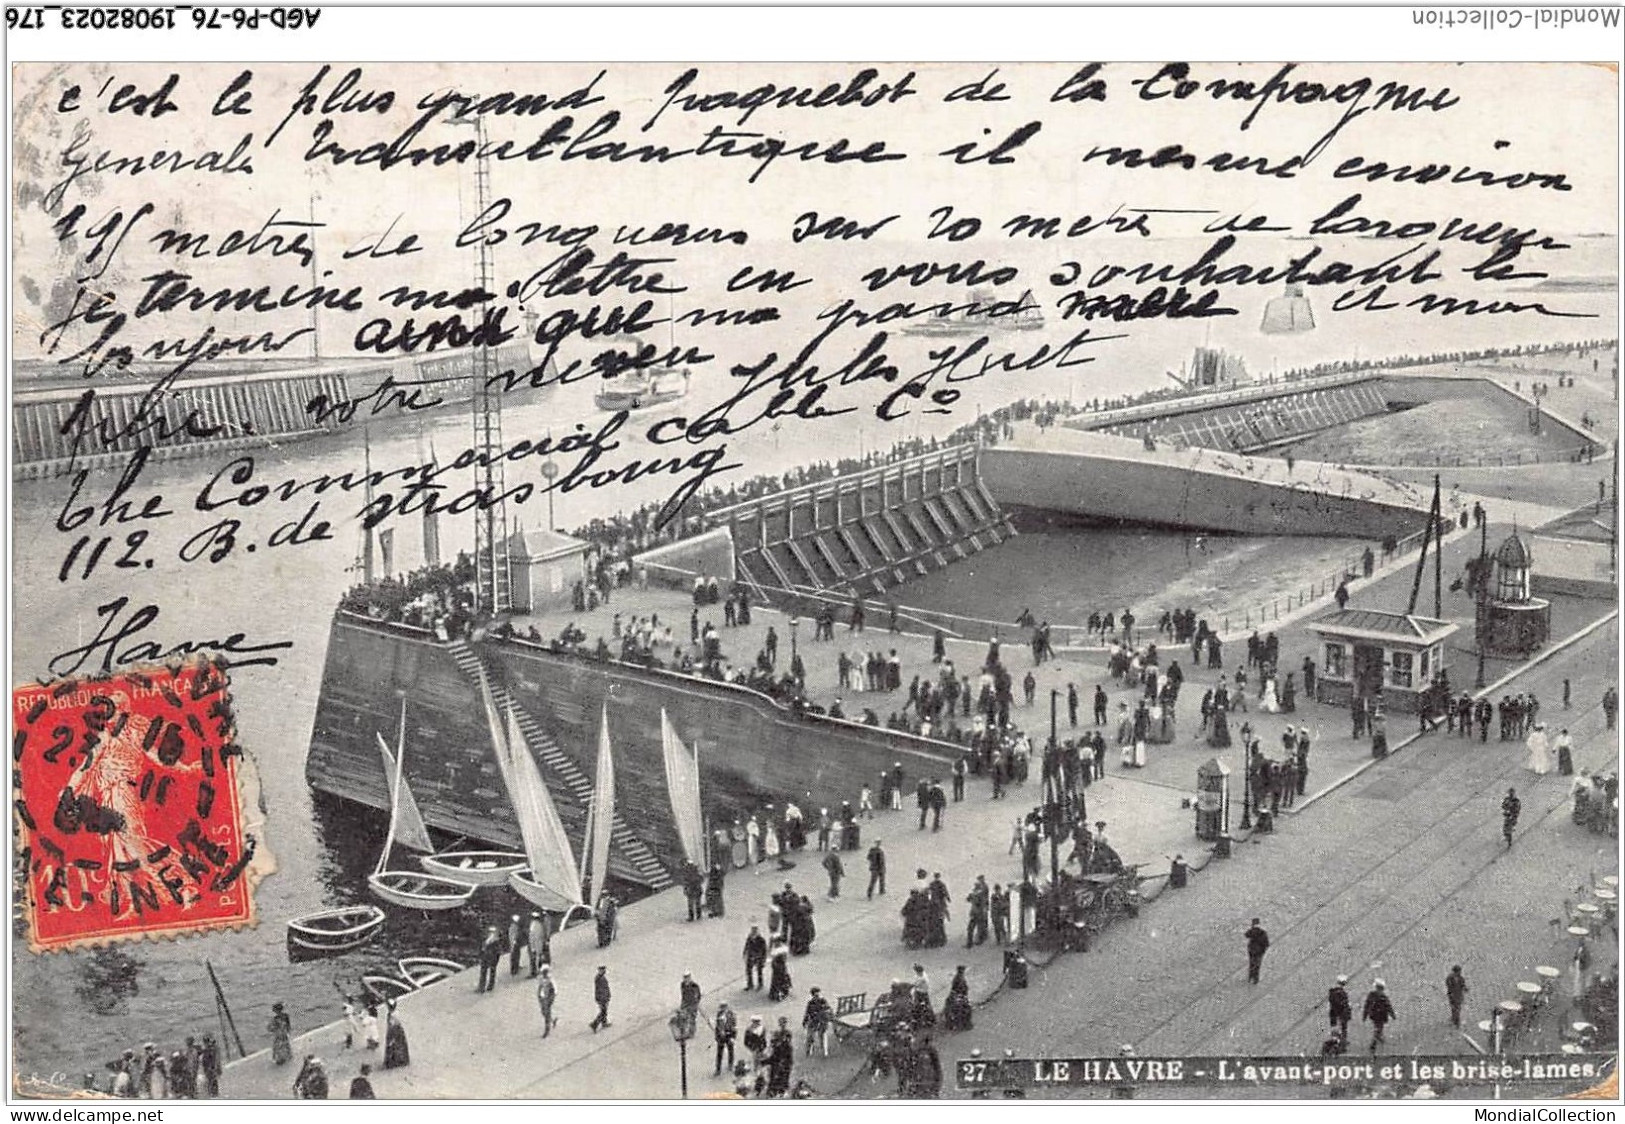 AGD-P6-76_19082023_176
Mondial-Collection
c'est le plus grand paquebot de la Compagnie
Générale Transatlantique il mesure environ
195 mètres de longueur sur 20 mètres de largeur
je termine ma lettre en vous souhaitant le
bonjour ainsi que ma grand mère et mon
père. votre neveu Jules Huet
The Commercial Cable Co
112. B. de Strasbourg
Havre
REPUBLIQUE FRANÇAISE
10c
POSTES
27 LE HAVRE - L'avant-port et les brise-lames.
MondialCollection